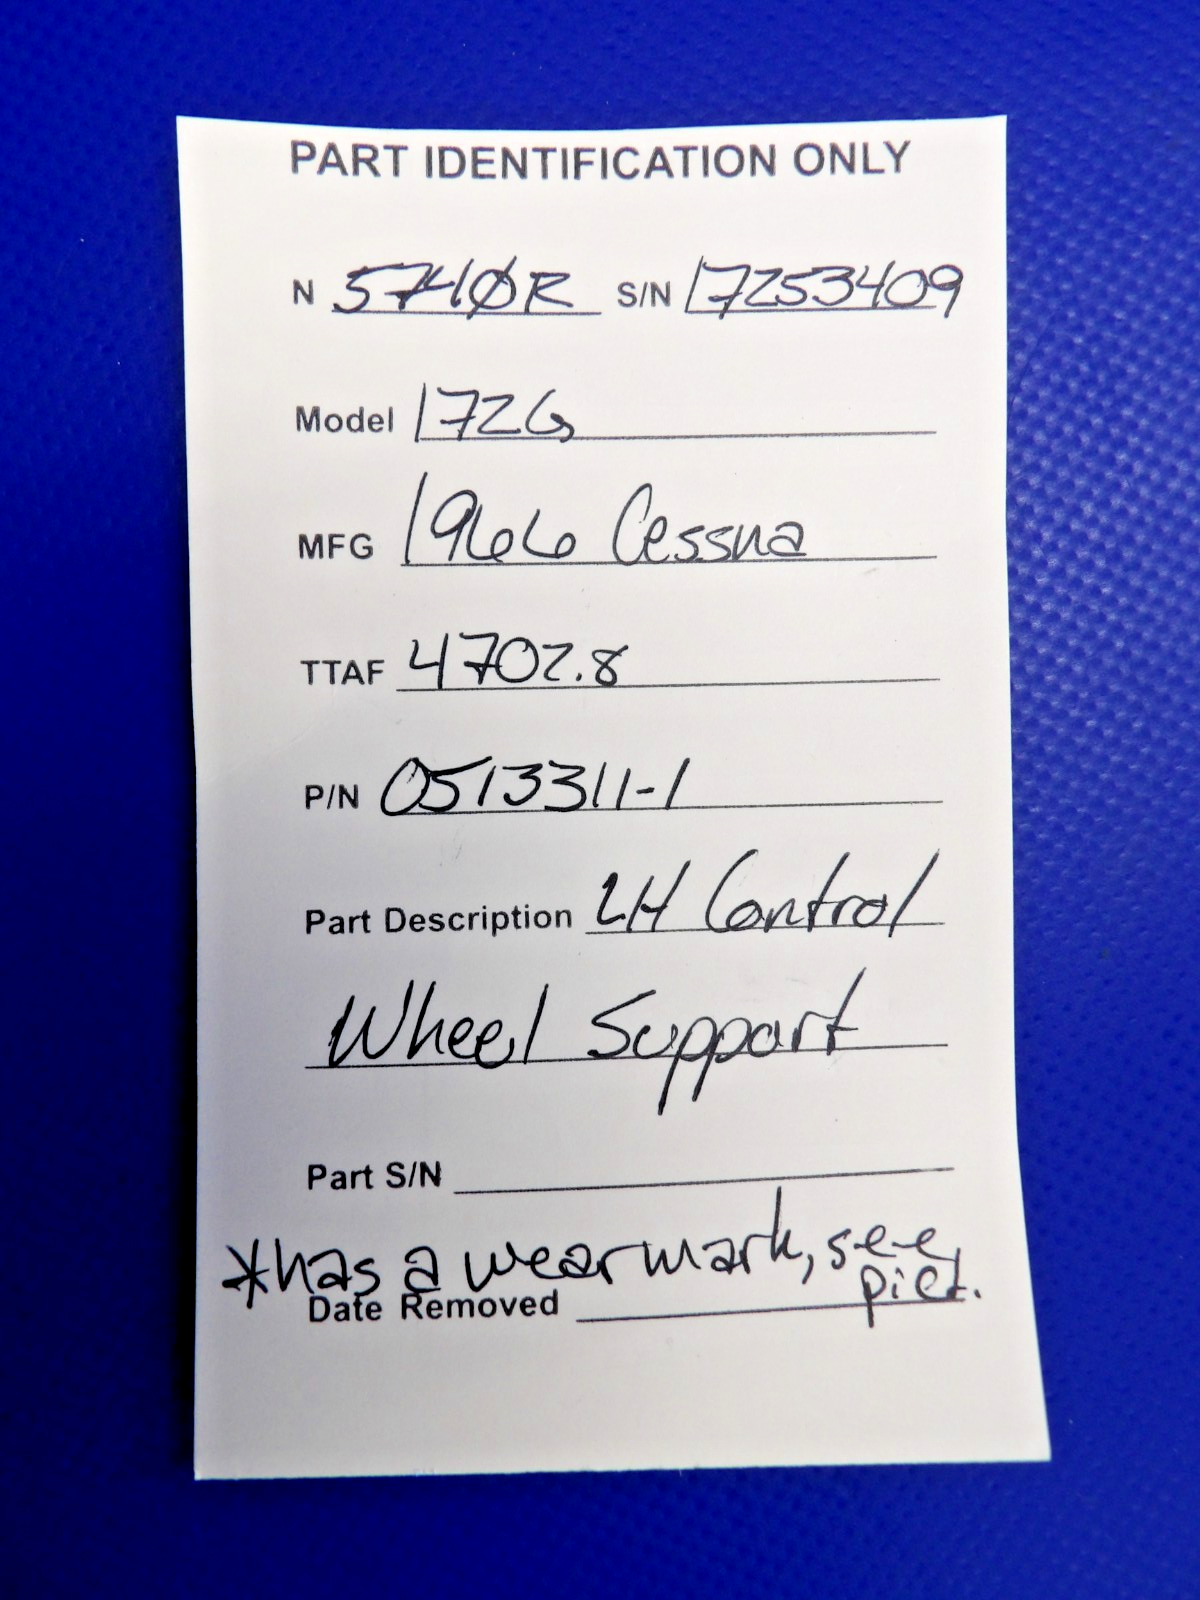 PART IDENTIFICATION ONLY
N 5740R S/N 17253409
Model 172G
MFG 1966 Cessna
TTAF 4702.8
P/N 0513311-1
Part Description LH Control
Wheel Support
Part S/N
*has a wear mark, see
pict.
Date Removed